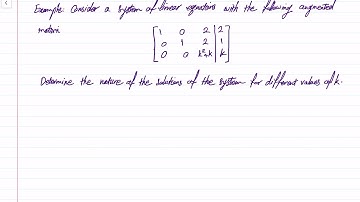 Example: Consider a system of linear equations with the following augmented
matrix.
1 0 2 2
0 1 2 1
0 0 k²+k k
Determine the nature of the solutions of the system for different values of k.